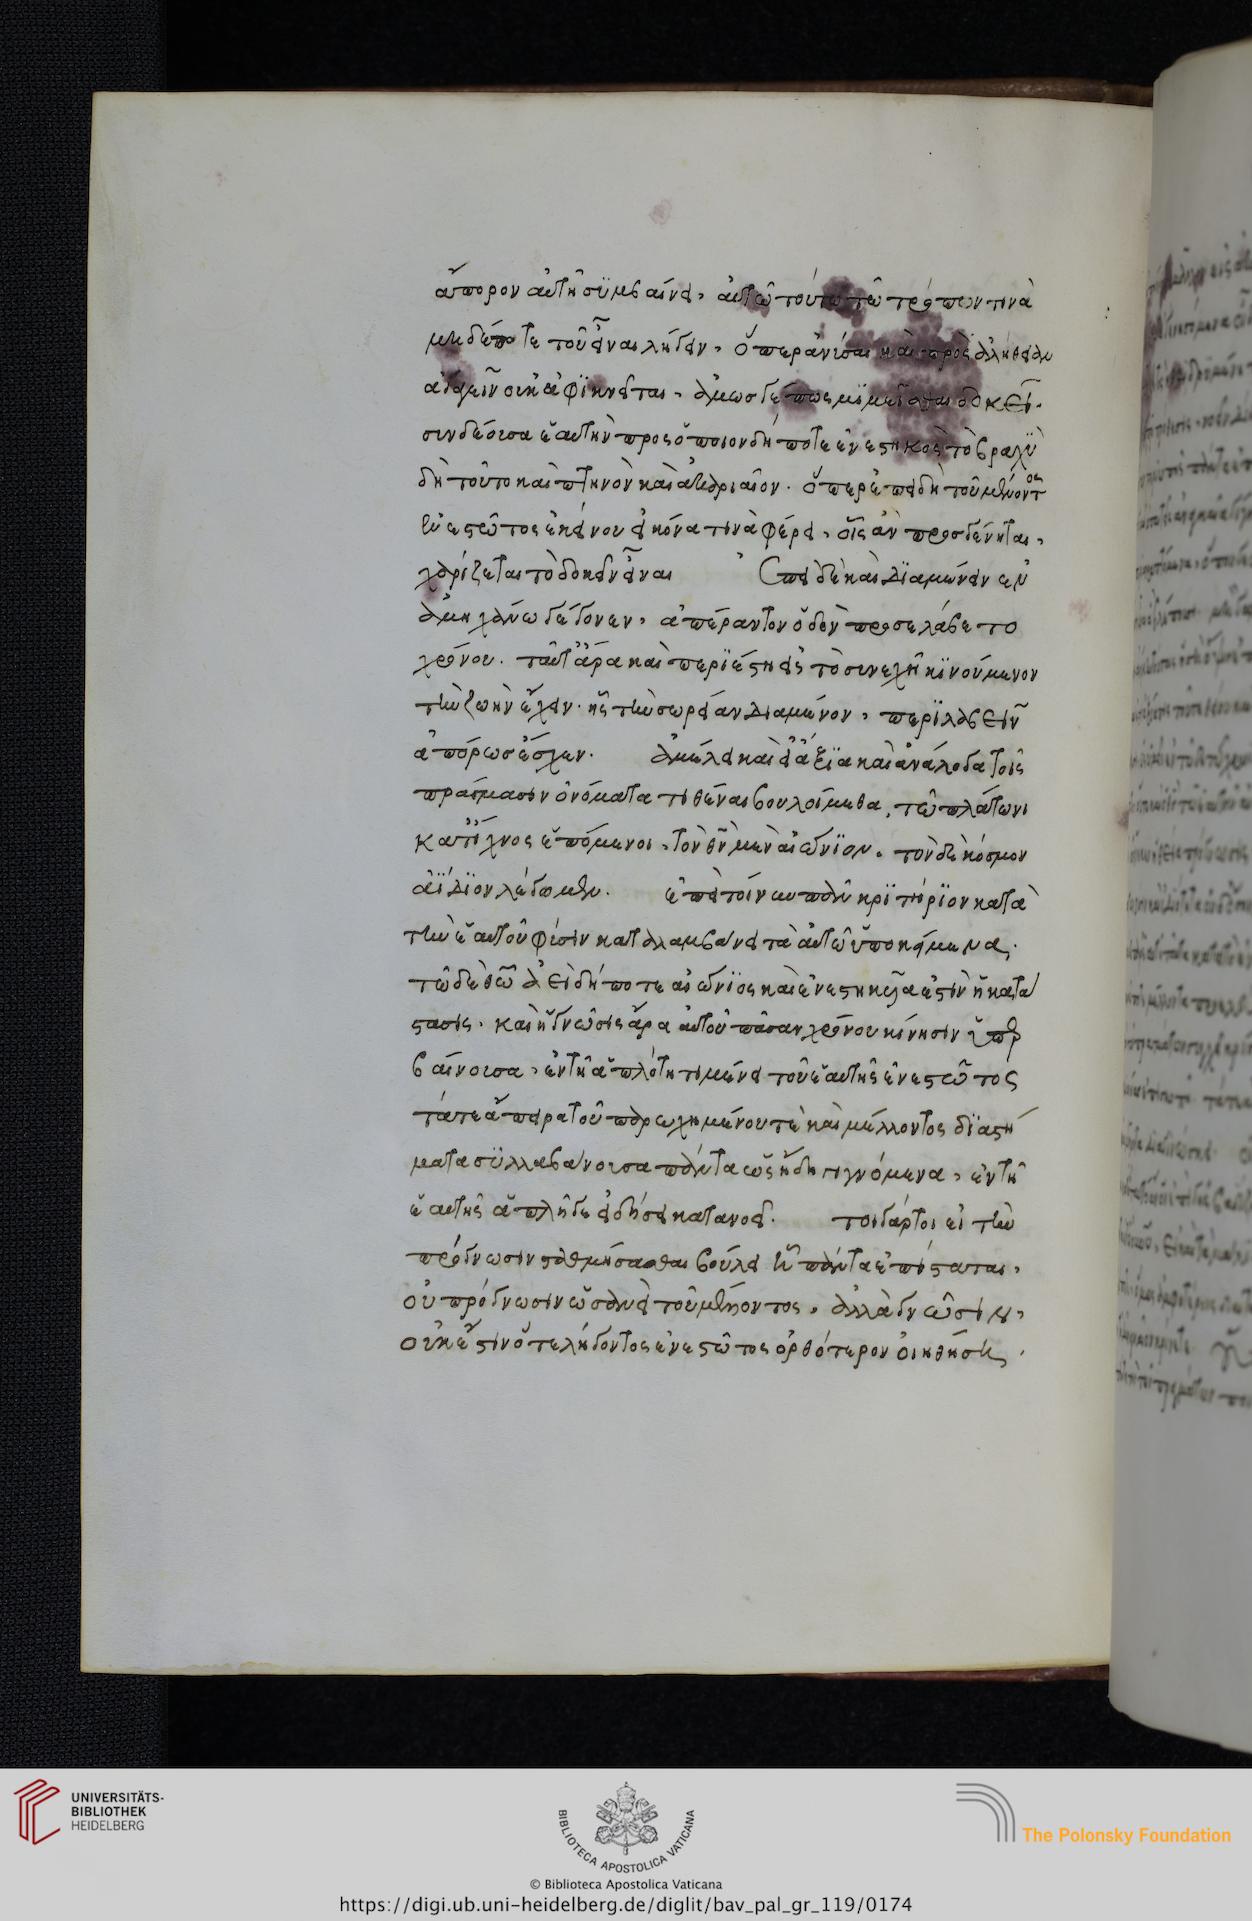 ἄπορον αὐτῆ συμβαίνει, αὐτῶ τούτω τῶ τρόπον τινὰ
μηδέποτε τοῦ εἶναι λήγειν, ὅπερ ἀνύσαι καὶ πρὸς ἀλήθειαν
ἀγαγεῖν οὐκ ἀφϊκνεῖται, ἀμωσγέπως μϊμεῖσθαι δοκεῖ.
συνδέουσα ἑαυτὴν πρὸς ὁποιονδήποτε ἐνεστηκὸς τὸ βραχϋ
δὴ τοῦτο καὶ πτηνὸν καὶ ἀκαριαῖον. ὅπερ ἐπειδὴ τοῦ μένοντος
ἐνεστῶτος ἐκείνου εἰκόνα τινὰ φέρει, οἷς ἂν προσγένηται,
χαρίζεται τὸ δοκεῖν εἶναι Ἐπεὶ δὲ καὶ δϊαμένειν ἐν
ἀμηχάνω γέγονεν, ἀπέραντον ὁδὸν προσελάβετο
χρόνου. ταῦτ ἄρα καὶ περϊέστη εἰς τὸ συνεχῆ κϊνούμενον
τὴν ζωὴν ἔχειν. ἧς τὴν σωρείαν διαμένον, περϊλαβεῖν
ἀπόρως ἔσχεν. ἀμέλει καὶ εἰ ἄξϊα καὶ ἀνάλογα τοῖς
πράγμασιν ὀνόματα τιθέναι βουλοίμεθα, τῶ πλάτωνι
κατίχνος ἑπόμενοι, τὸν θν̅ μὲν αἰώνϊον, τὸν δὲ κόσμον
ἀΐδϊον λέγωμεν. ἐπεὶ τοίνυν πᾶν κρϊτήρϊον κατὰ
τὴν ἑαυτοῦ φύσιν καταλαμβάνει τὰ αὐτῶ ὑποκείμενα,
τῶ δὲ θω̅ ἀειδήποτε αἰώνϊος καὶ ἐνεστηκυῖα ἐστὶν ἡ κατά
στασις. καὶ ἡ γνῶσις ἄρα αὐτοῦ πᾶσαν χρόνου κίνησιν ὑπερ
βαίνουσα, ἐν τῆ ἁπλότητι μένει τοῦ ἑαυτῆς ἐνεστῶτος
τά τε ἄπειρα τοῦ παρωχημένου τὲ καὶ μέλλοντος δϊαστή
ματα σϋλλαβάνουσα πάντα ὡς ἤδη γιγνόμενα, ἐν τῆ
ἑαυτῆς ἁπλῆ γε εἰδήσει κατανοεῖ. τοιγάρτοι εἰ τὴν
πρόγνωσιν σταθμήσασθαι βούλει ἧ πάντα ἐπίσταται,
οὐ πρόγνωσιν ὡσανεὶ τοῦ μέλλοντος, ἀλλὰ γνῶσιν,
οὐκ ἔστιν ὅτε λήγοντος ἐνεστῶτος ὀρθότερον οἰηθήσῃ.
UNIVERSITÄTS-
BIBLIOTHEK
HEIDELBERG
BIBLIOTECA APOSTOLICA VATICANA
The Polonsky Foundation
© Biblioteca Apostolica Vaticana
https://digi.ub.uni-heidelberg.de/diglit/bav_pal_gr_119/0174